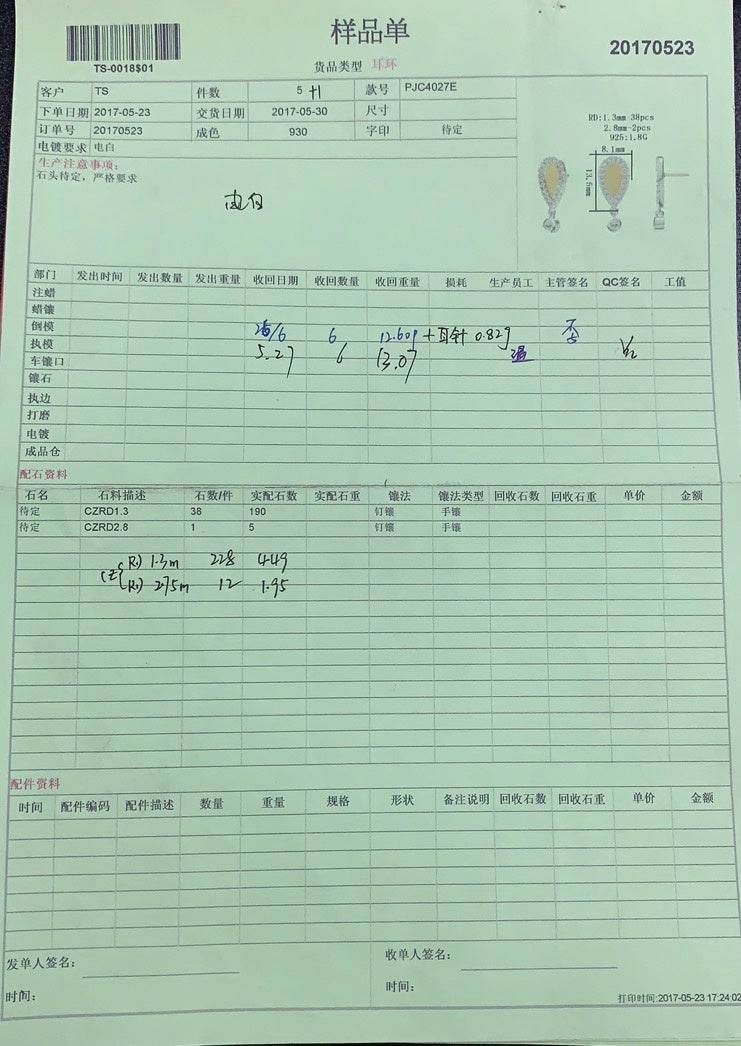 样品单
20170523
TS-0018$01
货品类型 耳环
客户 TS 件数 5 +1 款号 PJC4027E
下单日期 2017-05-23 交货日期 2017-05-30 尺寸
订单号 20170523 成色 930 字印 待定
电镀要求 电白
RD:1.3mm 38pcs
2.8mm-2pcs
925:1.8G
8.1mm
13.5mm
生产注意事项:
石头待定，严格要求
电白
部门 发出时间 发出数量 发出重量 收回日期 收回数量 收回重量 损耗 生产员工 主管签名 QC签名 工值
注蜡
蜡镶
倒模 6 12.60g +耳针 0.82g
执模 5.27 6 13.07
车镶口
镶石
执边
打磨
电镀
成品仓
配石资料
石名 石料描述 石数/件 实配石数 实配石重 镶法 镶法类型 回收石数 回收石重 单价 金额
待定 CZRD1.3 38 190 钉镶 手镶
待定 CZRD2.8 1 5 钉镶 手镶
CZ 1.3m 228 4.49
2.75m 12 1.95
配件资料
时间 配件编码 配件描述 数量 重量 规格 形状 备注说明 回收石数 回收石重 单价 金额
发单人签名: 收单人签名:
时间: 时间:
打印时间:2017-05-23 17:24:02